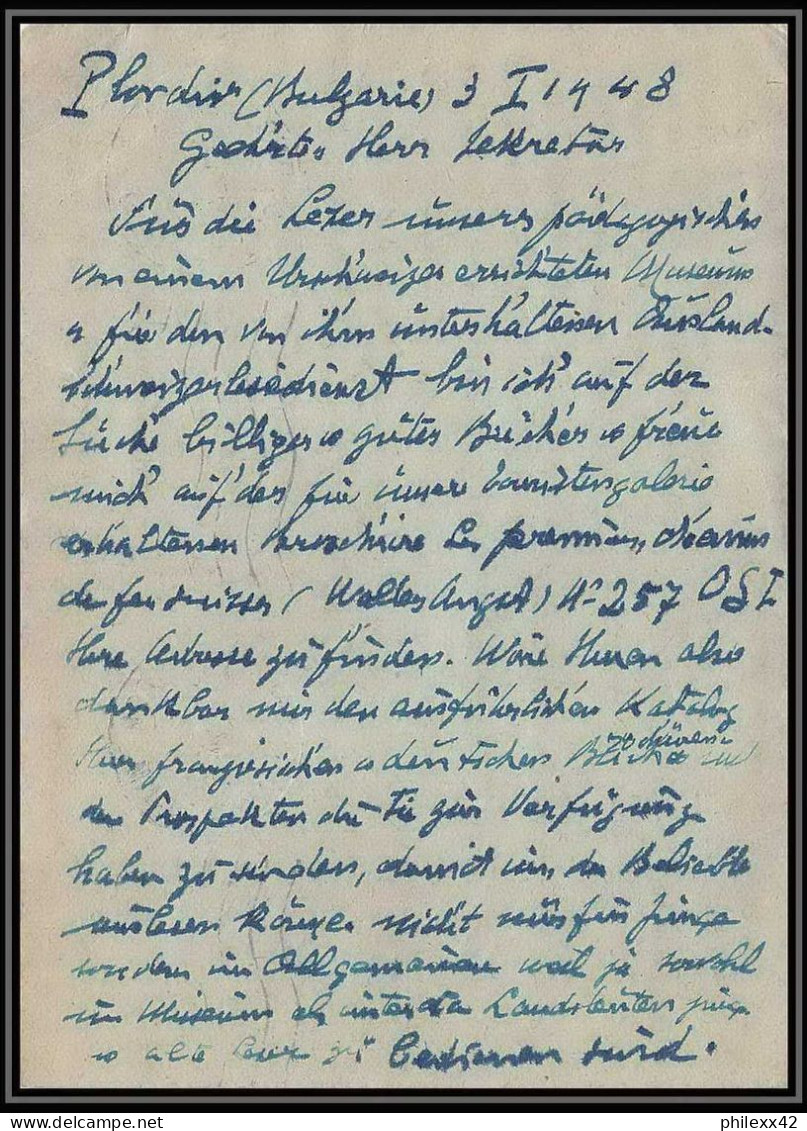 Plovdiv (Bulgarie) 3 I 1948
Geehrter Herr Sekretär
Für die Lezer unseres pädagogisches
von einem Urschweizer errichteten Museums
u für den von ihm unterhaltenen Ausland-
schweizerlesedienst bin ich auf der
Suche billiger u guter Bücher u freue
mich auf der für unsere Touristengalerie
erhaltenen Broschüre Les premiers chemins
de fer suisses (Walter Angst) No 257 OSL
Ihre Adresse zu finden. Wäre Ihnen also
dankbar mir den ausführlichen Katalog
Ihrer französischen u deutschen Bücher und
den Prospekten die Sie zur Verfügung
haben zu senden, damit wir das Beliebte
auslesen können nicht nur für junge
sondern im Allgemeinen weil ja sowohl
im Museum als unter den Landsleuten junge
u alte Lezer zu bedienen sind.
philexx42